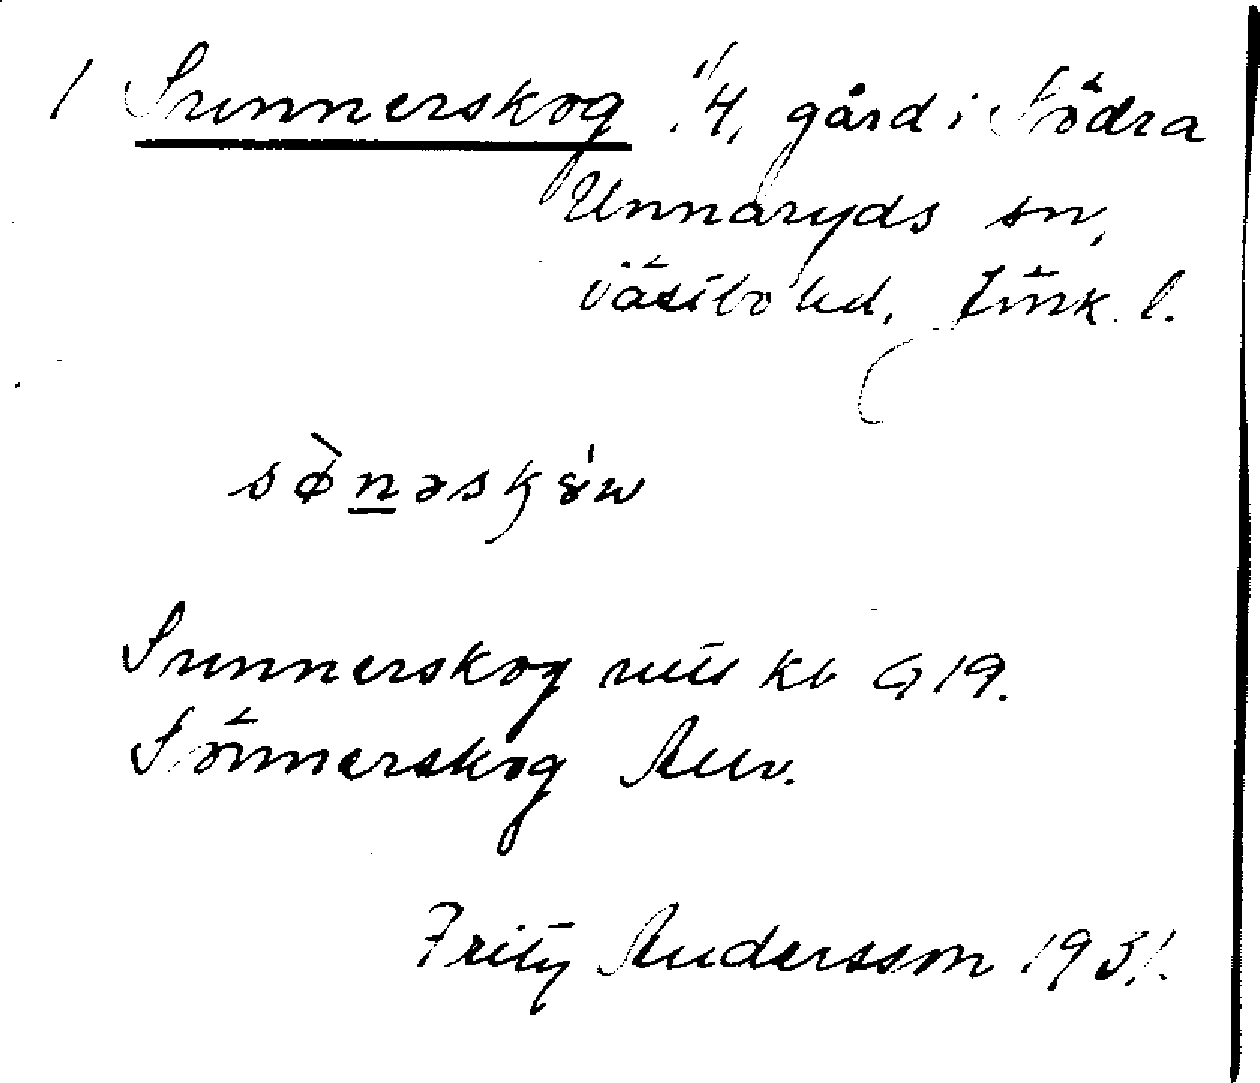 1 Sunnerskog 1/4, gård i Södra
Unnaryds sn,
Västbo hd, Jönk. l.
sø̀nəsk
Sunnerskog
Sönnerskog
Fritz Andersson 1931.